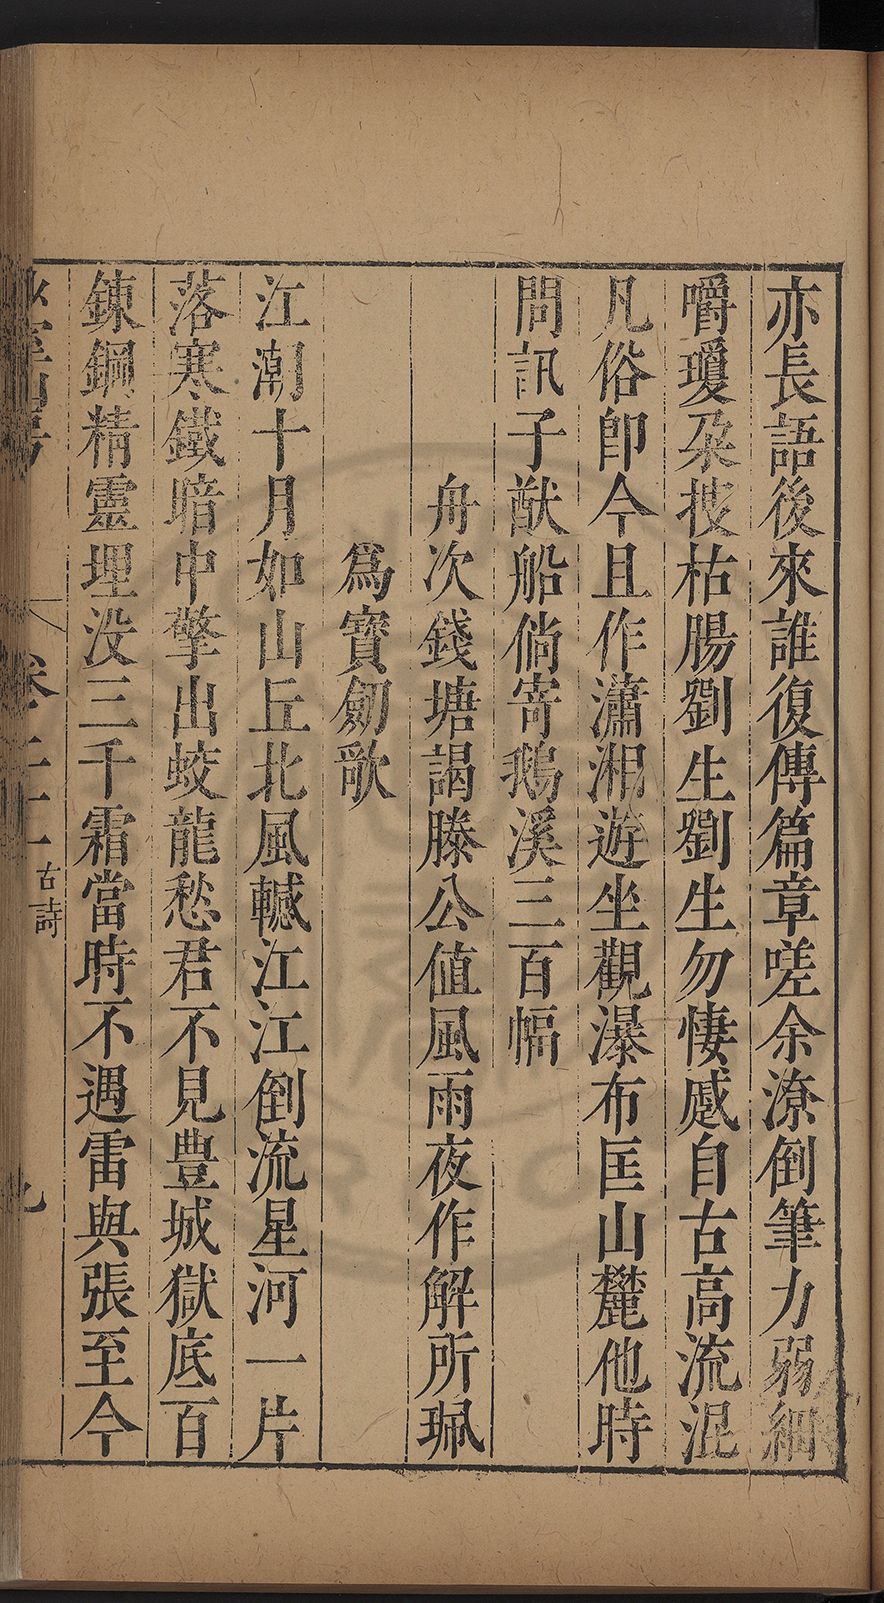 亦長語後來誰復傳篇章嗟余潦倒筆力弱細
嚼瓊朶披枯腸劉生劉生勿悽慼自古高流混
凡俗卽今且作瀟湘遊坐觀瀑布匡山麓他時
問訊子猷船倘寄鵝溪三百幅
舟次錢塘謁滕公値風雨夜作解所珮
爲寶劒歌
江潮十月如山丘北風轗江江倒流星河一片
落寒鐵暗中擎出蛟龍愁君不見豊城獄底百
鍊鋼精靈埋没三千霜當時不遇雷與張至今
卷之十一
古詩
九